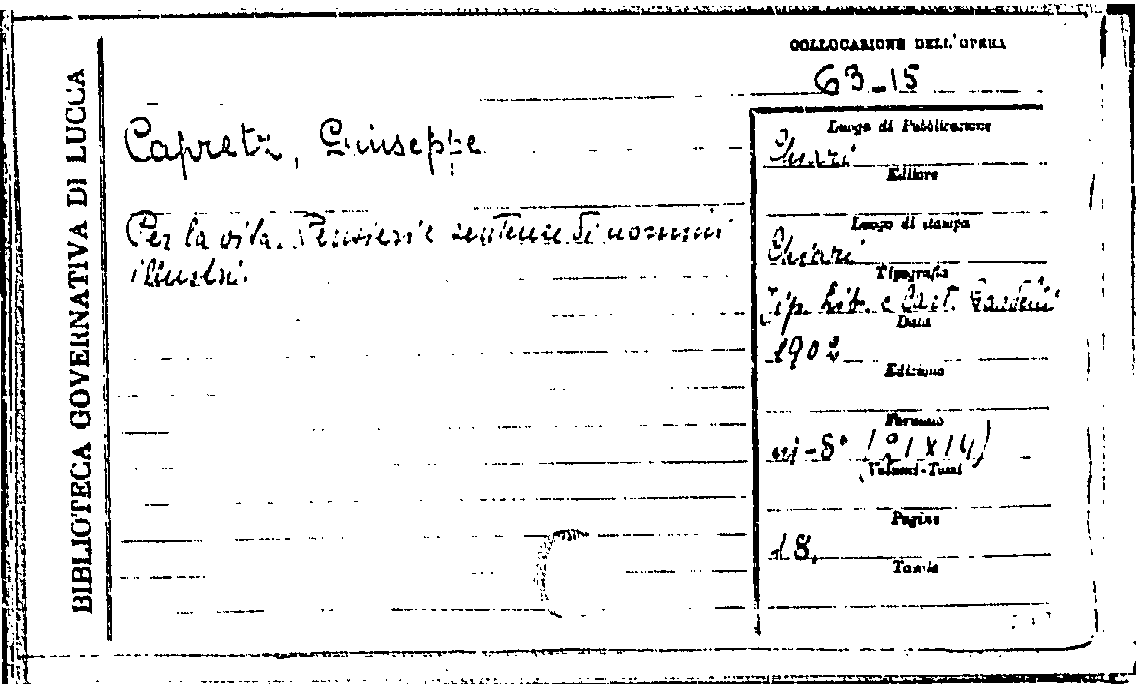 BIBLIOTECA GOVERNATIVA DI LUCCA
COLLOCAZIONE DELL'OPERA
63-15
Capretz, Giuseppe
Per la vita. Pensieri e sentenze di uomini
illustri.
Luogo di Pubblicazione
Chiari
Editore
Luogo di stampa
Chiari
Tipografia
Tip. Lit. e Cart.
Data
1902
Edizione
Formato
in-8° (21x14)
Volumi-Tomi
Pagine
18.
Tavole